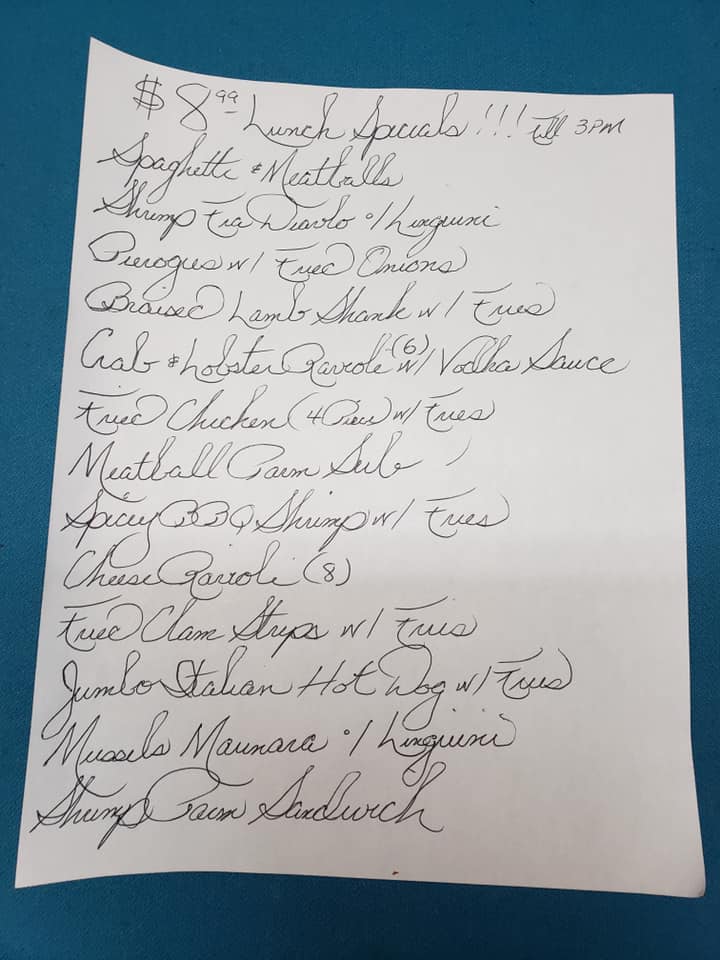 $ 8.99 Lunch Specials !!! Till 3PM
Spaghetti & Meatballs
Shrimp Fra Diavlo o/ Linguini
Pierogies w/ Fried Onions
Braised Lamb Shank w/ Fries
Crab & Lobster Ravioli (6) w/ Vodka Sauce
Fried Chicken (4 Piece) w/ Fries
Meatball Parm Sub
Spicy BBQ Shrimp w/ Fries
Cheese Ravioli (8)
Fried Clam Strips w/ Fries
Jumbo Italian Hot Dog w/ Fries
Mussels Marinara o/ Linguini
Shrimp Parm Sandwich